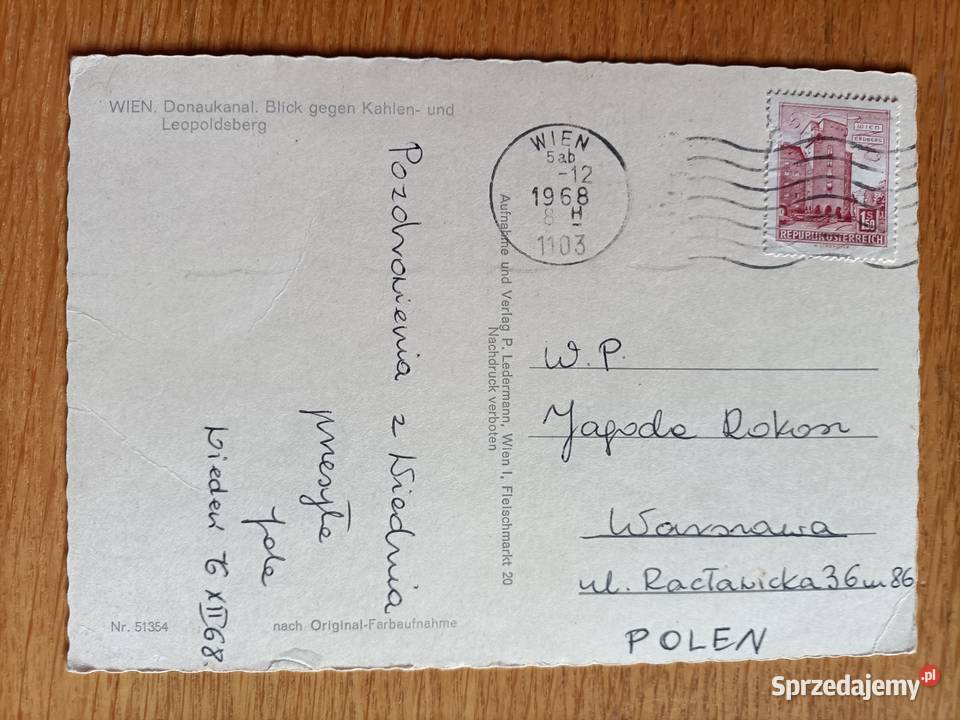 WIEN. Donaukanal. Blick gegen Kahlen- und
Leopoldsberg
Pozdrowienia z Wiednia
przesyła
Jola
Wiedeń 6 XII 68.
Nr. 51354
nach Original-Farbaufnahme
Aufnahme und Verlag P. Ledermann, Wien I, Fleischmarkt 20
Nachdruck verboten
WIEN
5ab
-12
1968
8 H
1103
WIEN
ERDBERG
1S50
REPUBLIK ÖSTERREICH
W.P.
Jagoda Rokosz
Warszawa
ul. Racławicka 36 m 86
POLEN
Sprzedajemy.pl